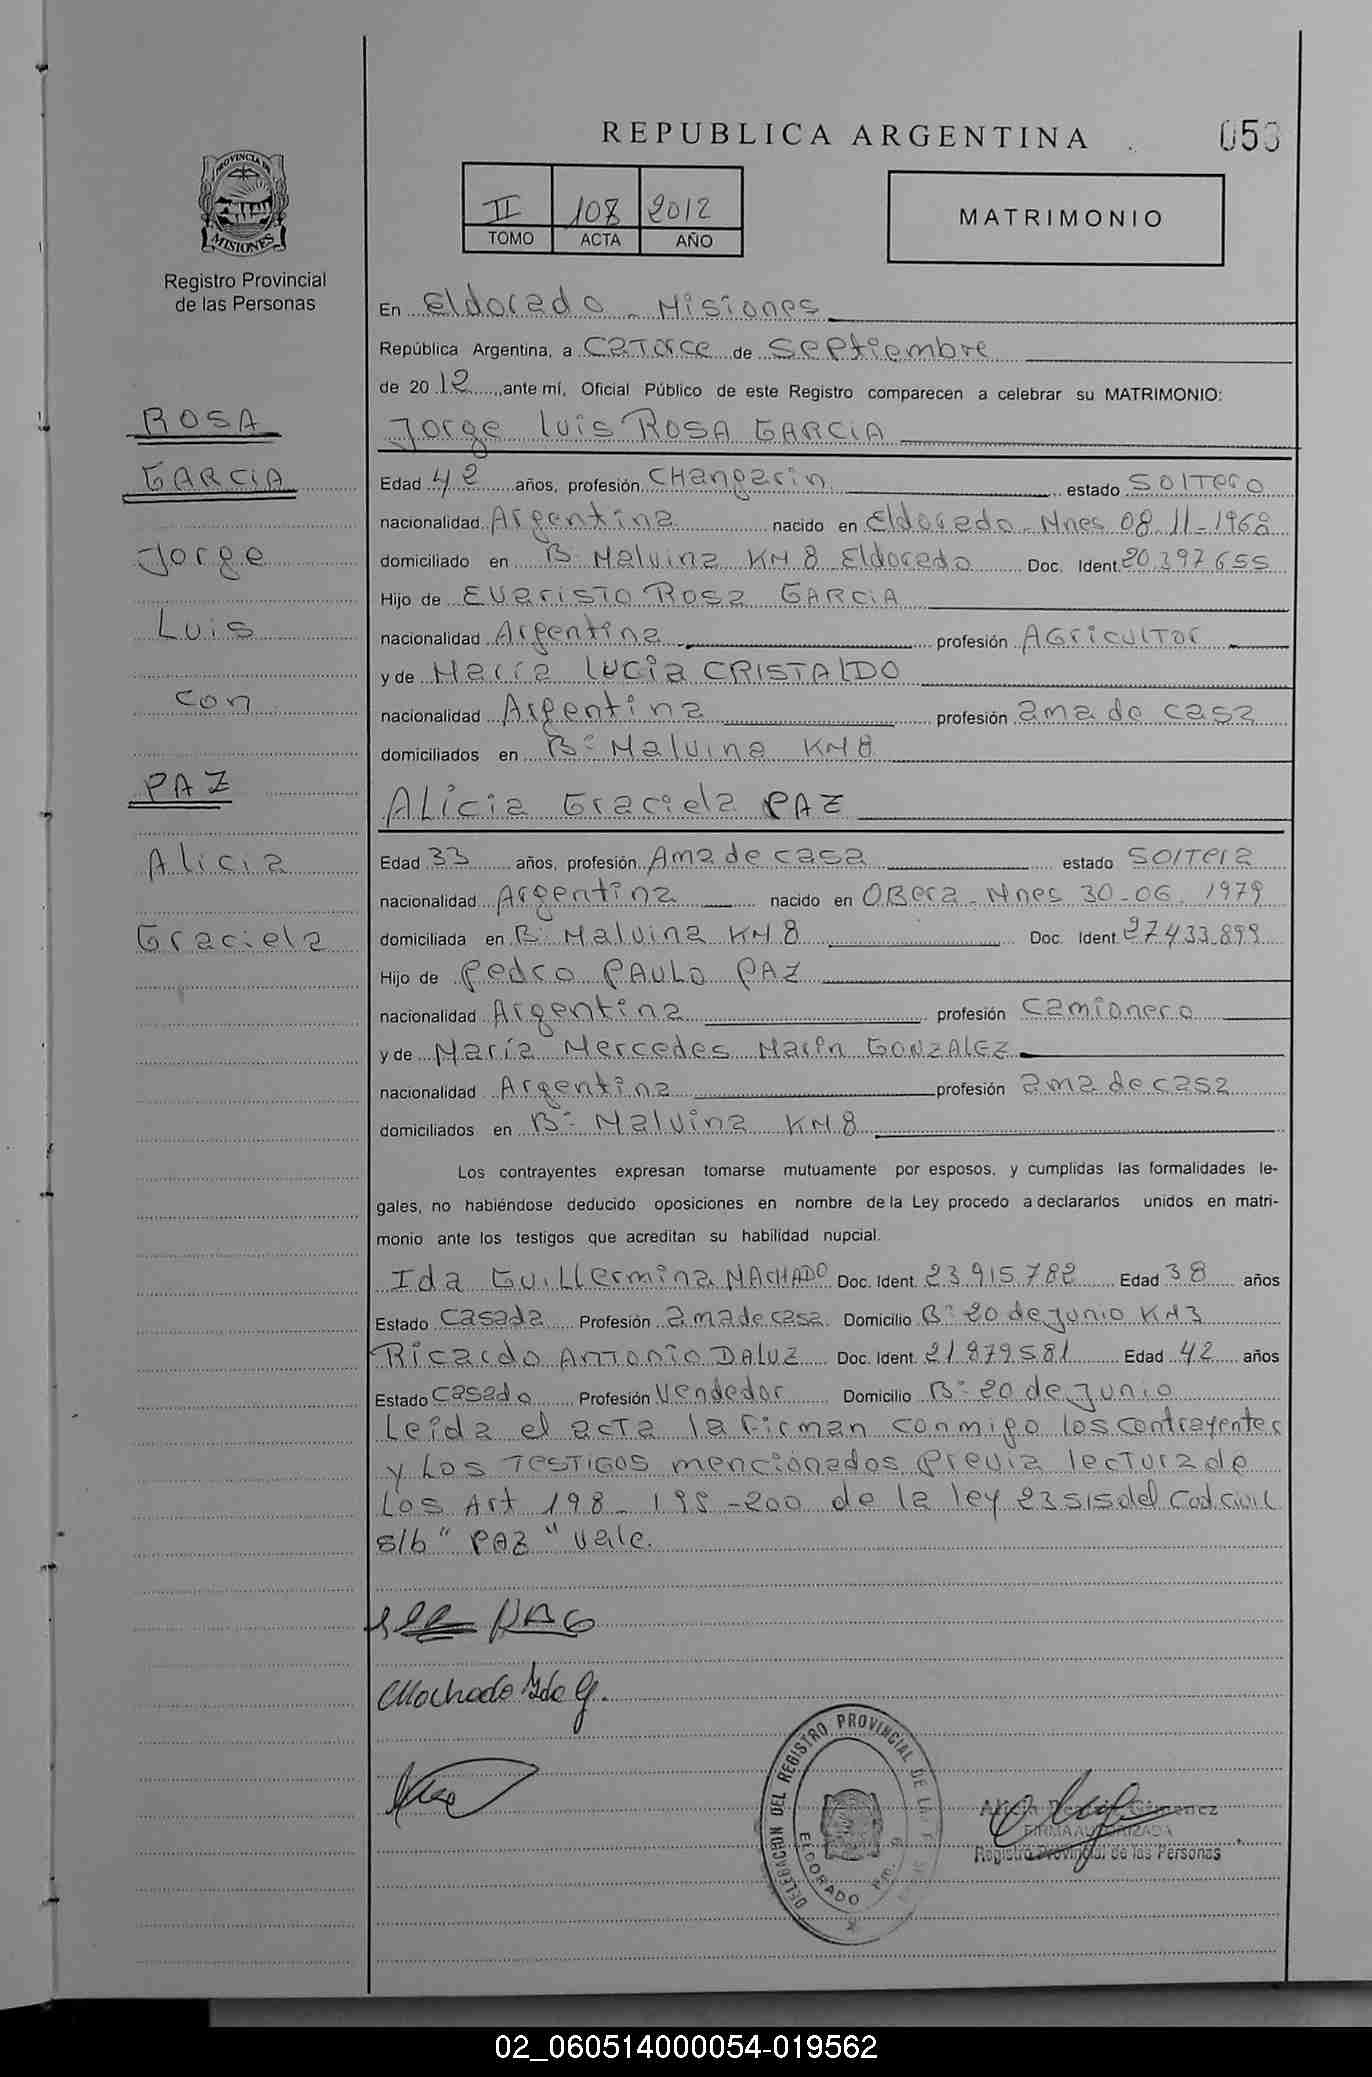 REPUBLICA ARGENTINA
053
PROVINCIA DE
MISIONES
Registro Provincial
de las Personas
II 108 2012
TOMO ACTA AÑO
MATRIMONIO
ROSA
GARCIA
Jorge
Luis
con
PAZ
Alicia
Graciela
En Eldorado - Misiones
República Argentina, a Catorce de Septiembre
de 2012, ante mí, Oficial Público de este Registro comparecen a celebrar su MATRIMONIO:
Jorge Luis ROSA GARCIA
Edad 42 años, profesión CHangarin estado SOlTero
nacionalidad Argentina nacido en Eldorado - Mnes 08-11-1968
domiciliado en Bº Malvina KM 8 Eldorado Doc. Ident. 20.397.655
Hijo de Evaristo Rosa GARCIA
nacionalidad Argentina profesión AGricultor
y de María LUCia CRISTALDO
nacionalidad Argentina profesión ama de casa
domiciliados en Bº Malvina KM 8
ALicia Graciela PAZ
Edad 33 años, profesión Ama de casa estado SOlTera
nacionalidad Argentina nacido en OBera - Mnes 30-06-1979
domiciliada en Bº Malvina KM 8 Doc. Ident. 27.433.899
Hijo de Pedro PAULO PAZ
nacionalidad Argentina profesión Camionero
y de María Mercedes GONZALEZ
nacionalidad Argentina profesión ama de casa
domiciliados en Bº Malvina KM 8
Los contrayentes expresan tomarse mutuamente por esposos, y cumplidas las formalidades le-
gales, no habiéndose deducido oposiciones en nombre de la Ley procedo a declararlos unidos en matri-
monio ante los testigos que acreditan su habilidad nupcial.
Ida Guillermina MACHADO Doc. Ident. 23.915.782 Edad 38 años
Estado Casada Profesión ama de casa Domicilio Bº 20 de Junio KM3
Ricardo Antonio DALUZ Doc. Ident. 21.879.581 Edad 42 años
Estado Casado Profesión Vendedor Domicilio Bº 20 de Junio
Leída el acta la Firman conmigo los contrayentes
y Los TESTIGOS mencionados previa lectura de
Los Art 198 - 199 - 200 de la ley 23515 del Cod civil
s/b "PAZ" vale.
PAZ
Machado Ida G.
DELEGACION DEL REGISTRO PROVINCIAL DE LAS
ELDORADO
Gimenez
FIRMA AUTORIZADA
Registro Provincial de las Personas
02_060514000054-019562